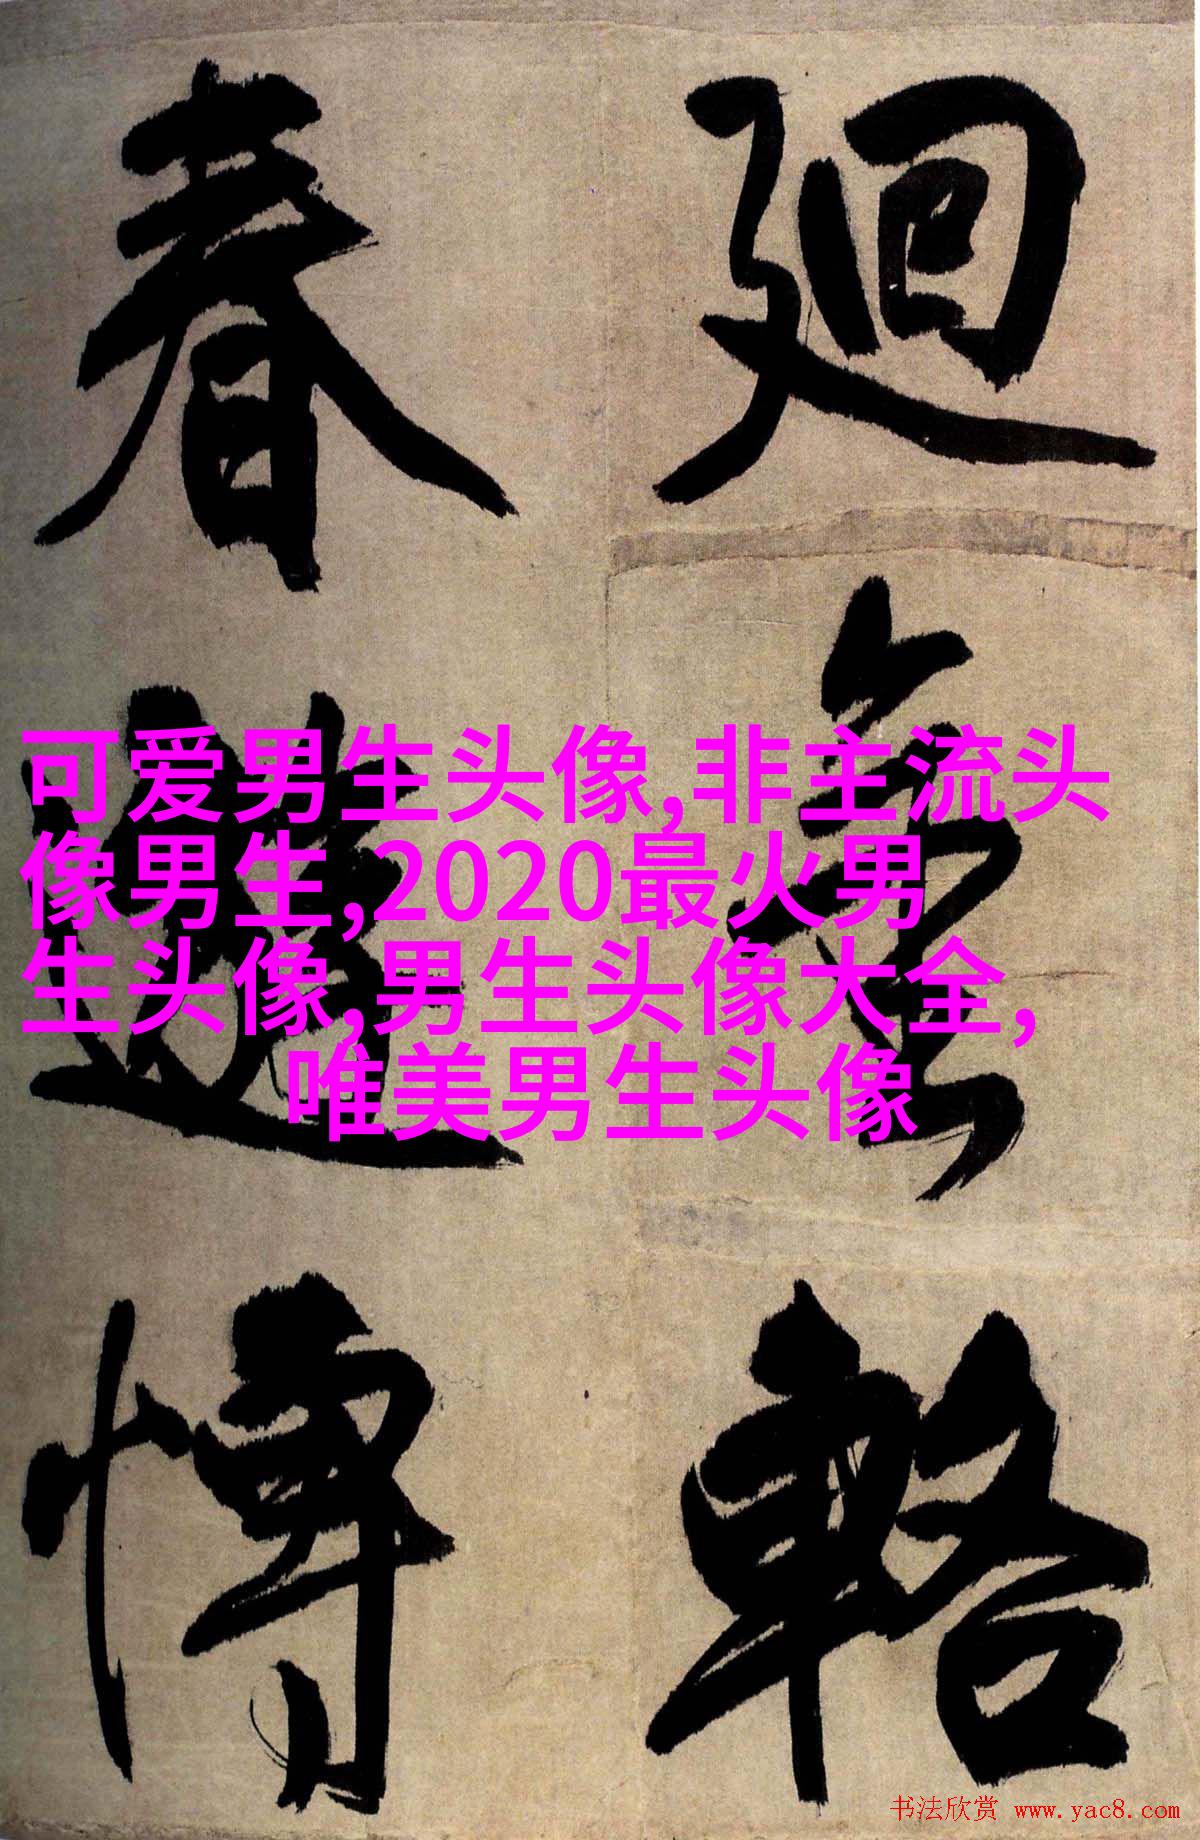 廻
輅
春
愽
可爱男生头像,非主流头
像男生,2020最火男
生头像,男生头像大全,
唯美男生头像
书法欣赏 www.yac8.com